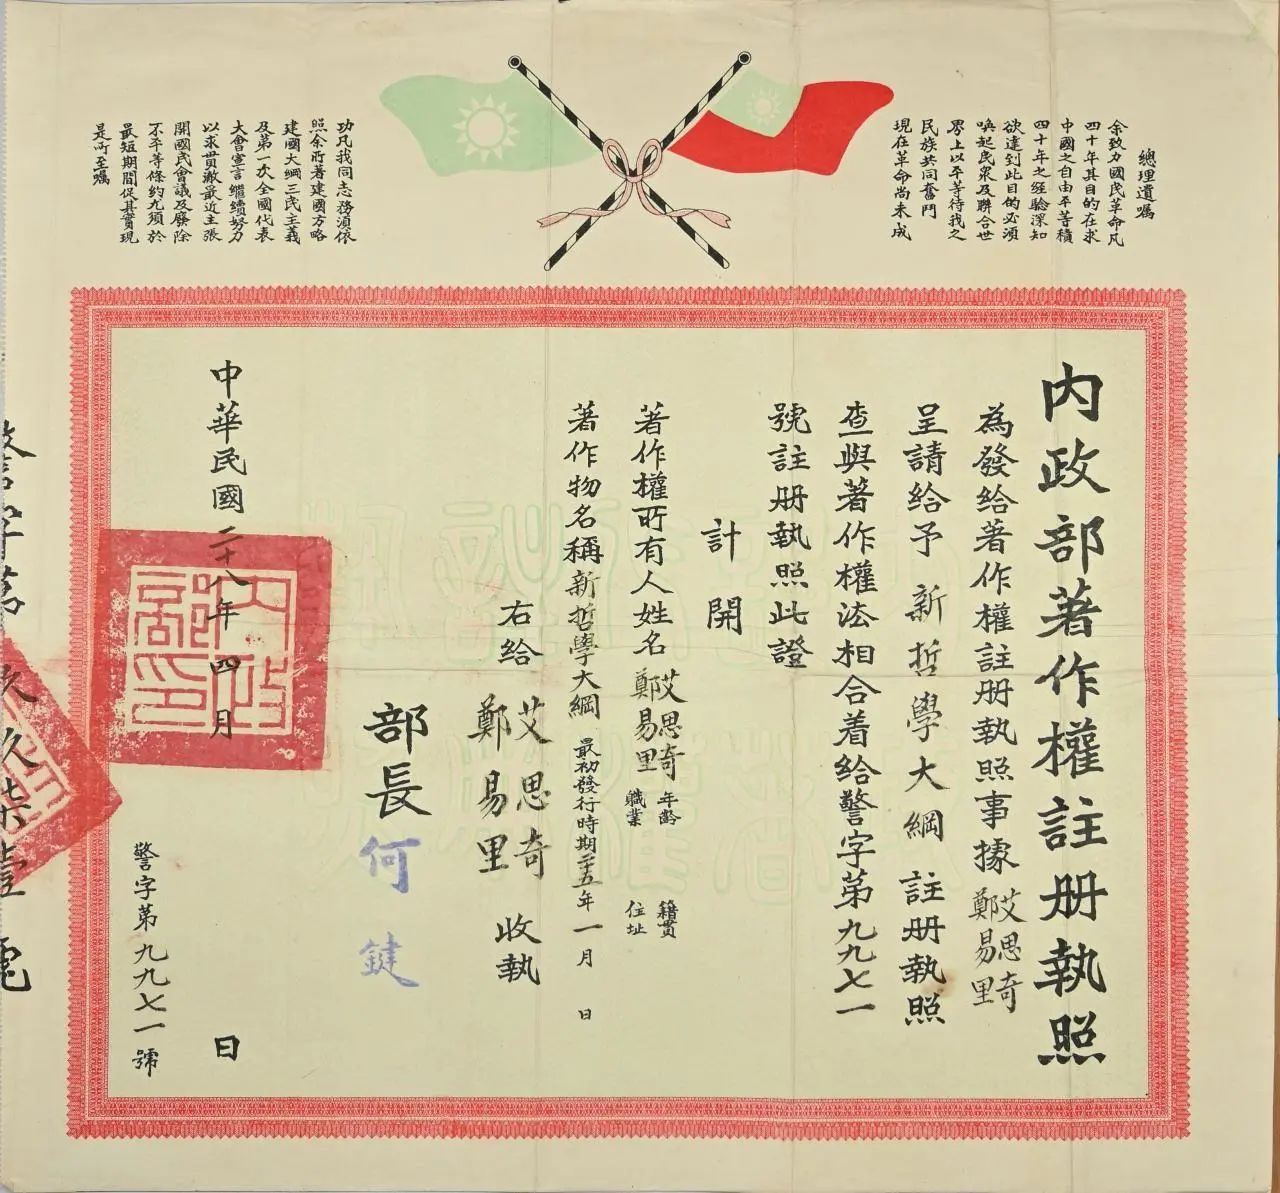 總理遺囑
余致力國民革命凡
四十年其目的在求
中國之自由平等積
四十年之經驗深知
欲達到此目的必須
喚起民眾及聯合世
界上以平等待我之
民族共同奮鬥
現在革命尚未成
功凡我同志務須依
照余所著建國方略
建國大綱三民主義
及第一次全國代表
大會宣言繼續努力
以求貫澈最近主張
開國民會議及廢除
不平等條約尤須於
最短期間促其實現
是所至囑
內政部著作權註册執照
為發給著作權註册執照事據艾思奇
鄭易里
呈請給予新哲學大綱註册執照
查與著作權法相合着給警字第九九七一
號註册執照此證
計開
著作權所有人姓名艾思奇
鄭易里
年齡
職業
籍貫
住址
著作物名稱新哲學大綱最初發行時期二十五年一月 日
右給
艾思奇
鄭易里
收執
部長何鍵
中華民國二十八年四月 日
內政部印
警字第九九七一號